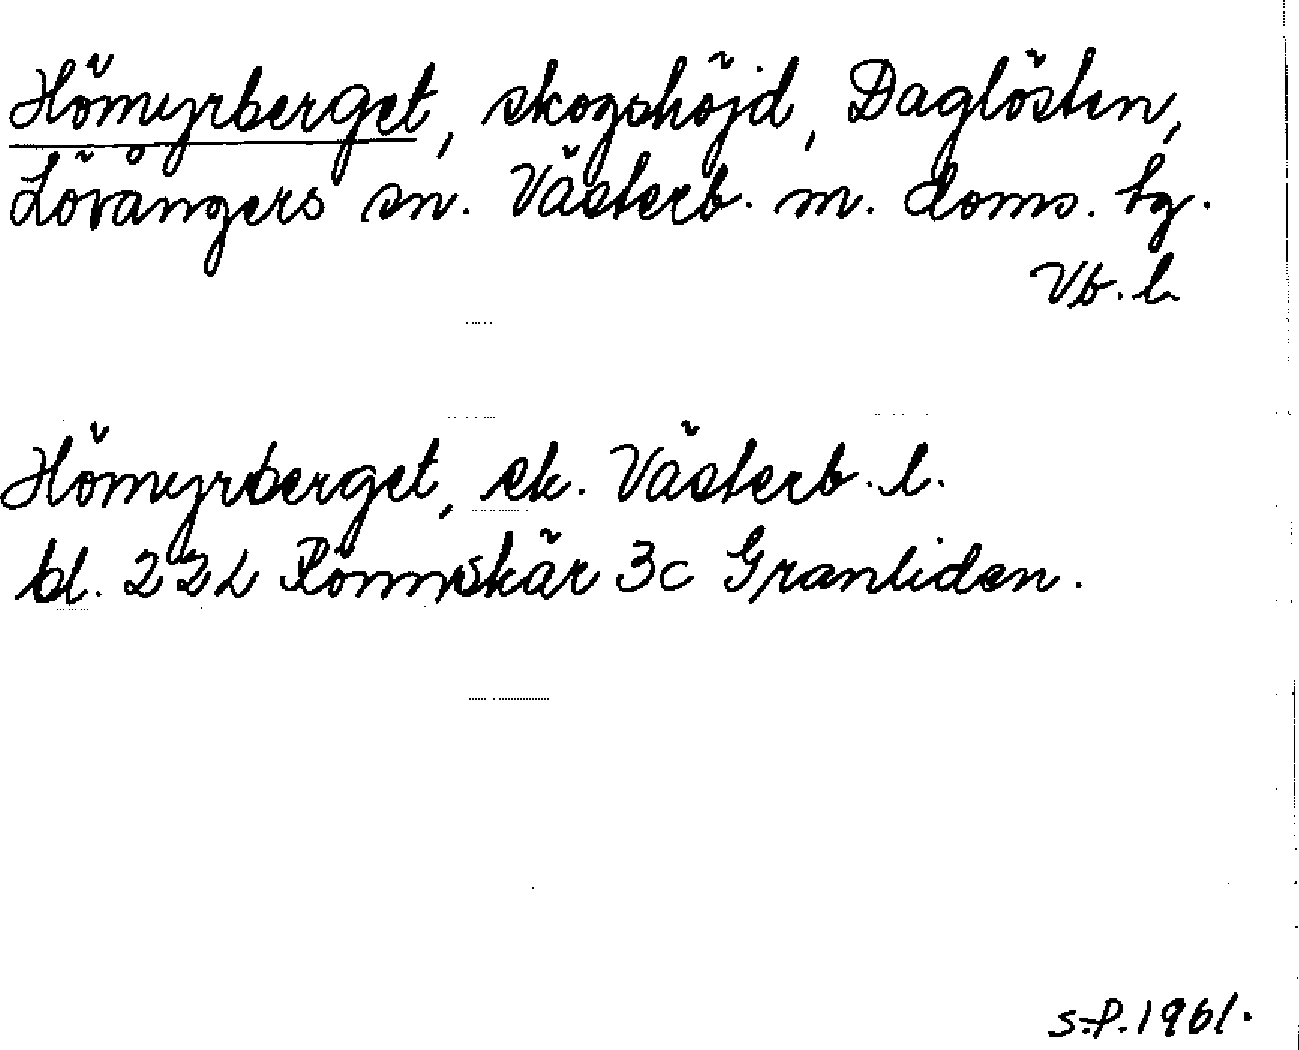 Hömyrberget, skogshöjd, Daglösten,
Lövångers sn. Västerb. m. doms. tg.
Vb. l.
Hömyrberget, sk. Västerb. l.
bl. 22L Rönnskär 3c Granliden.
S.P. 1961.